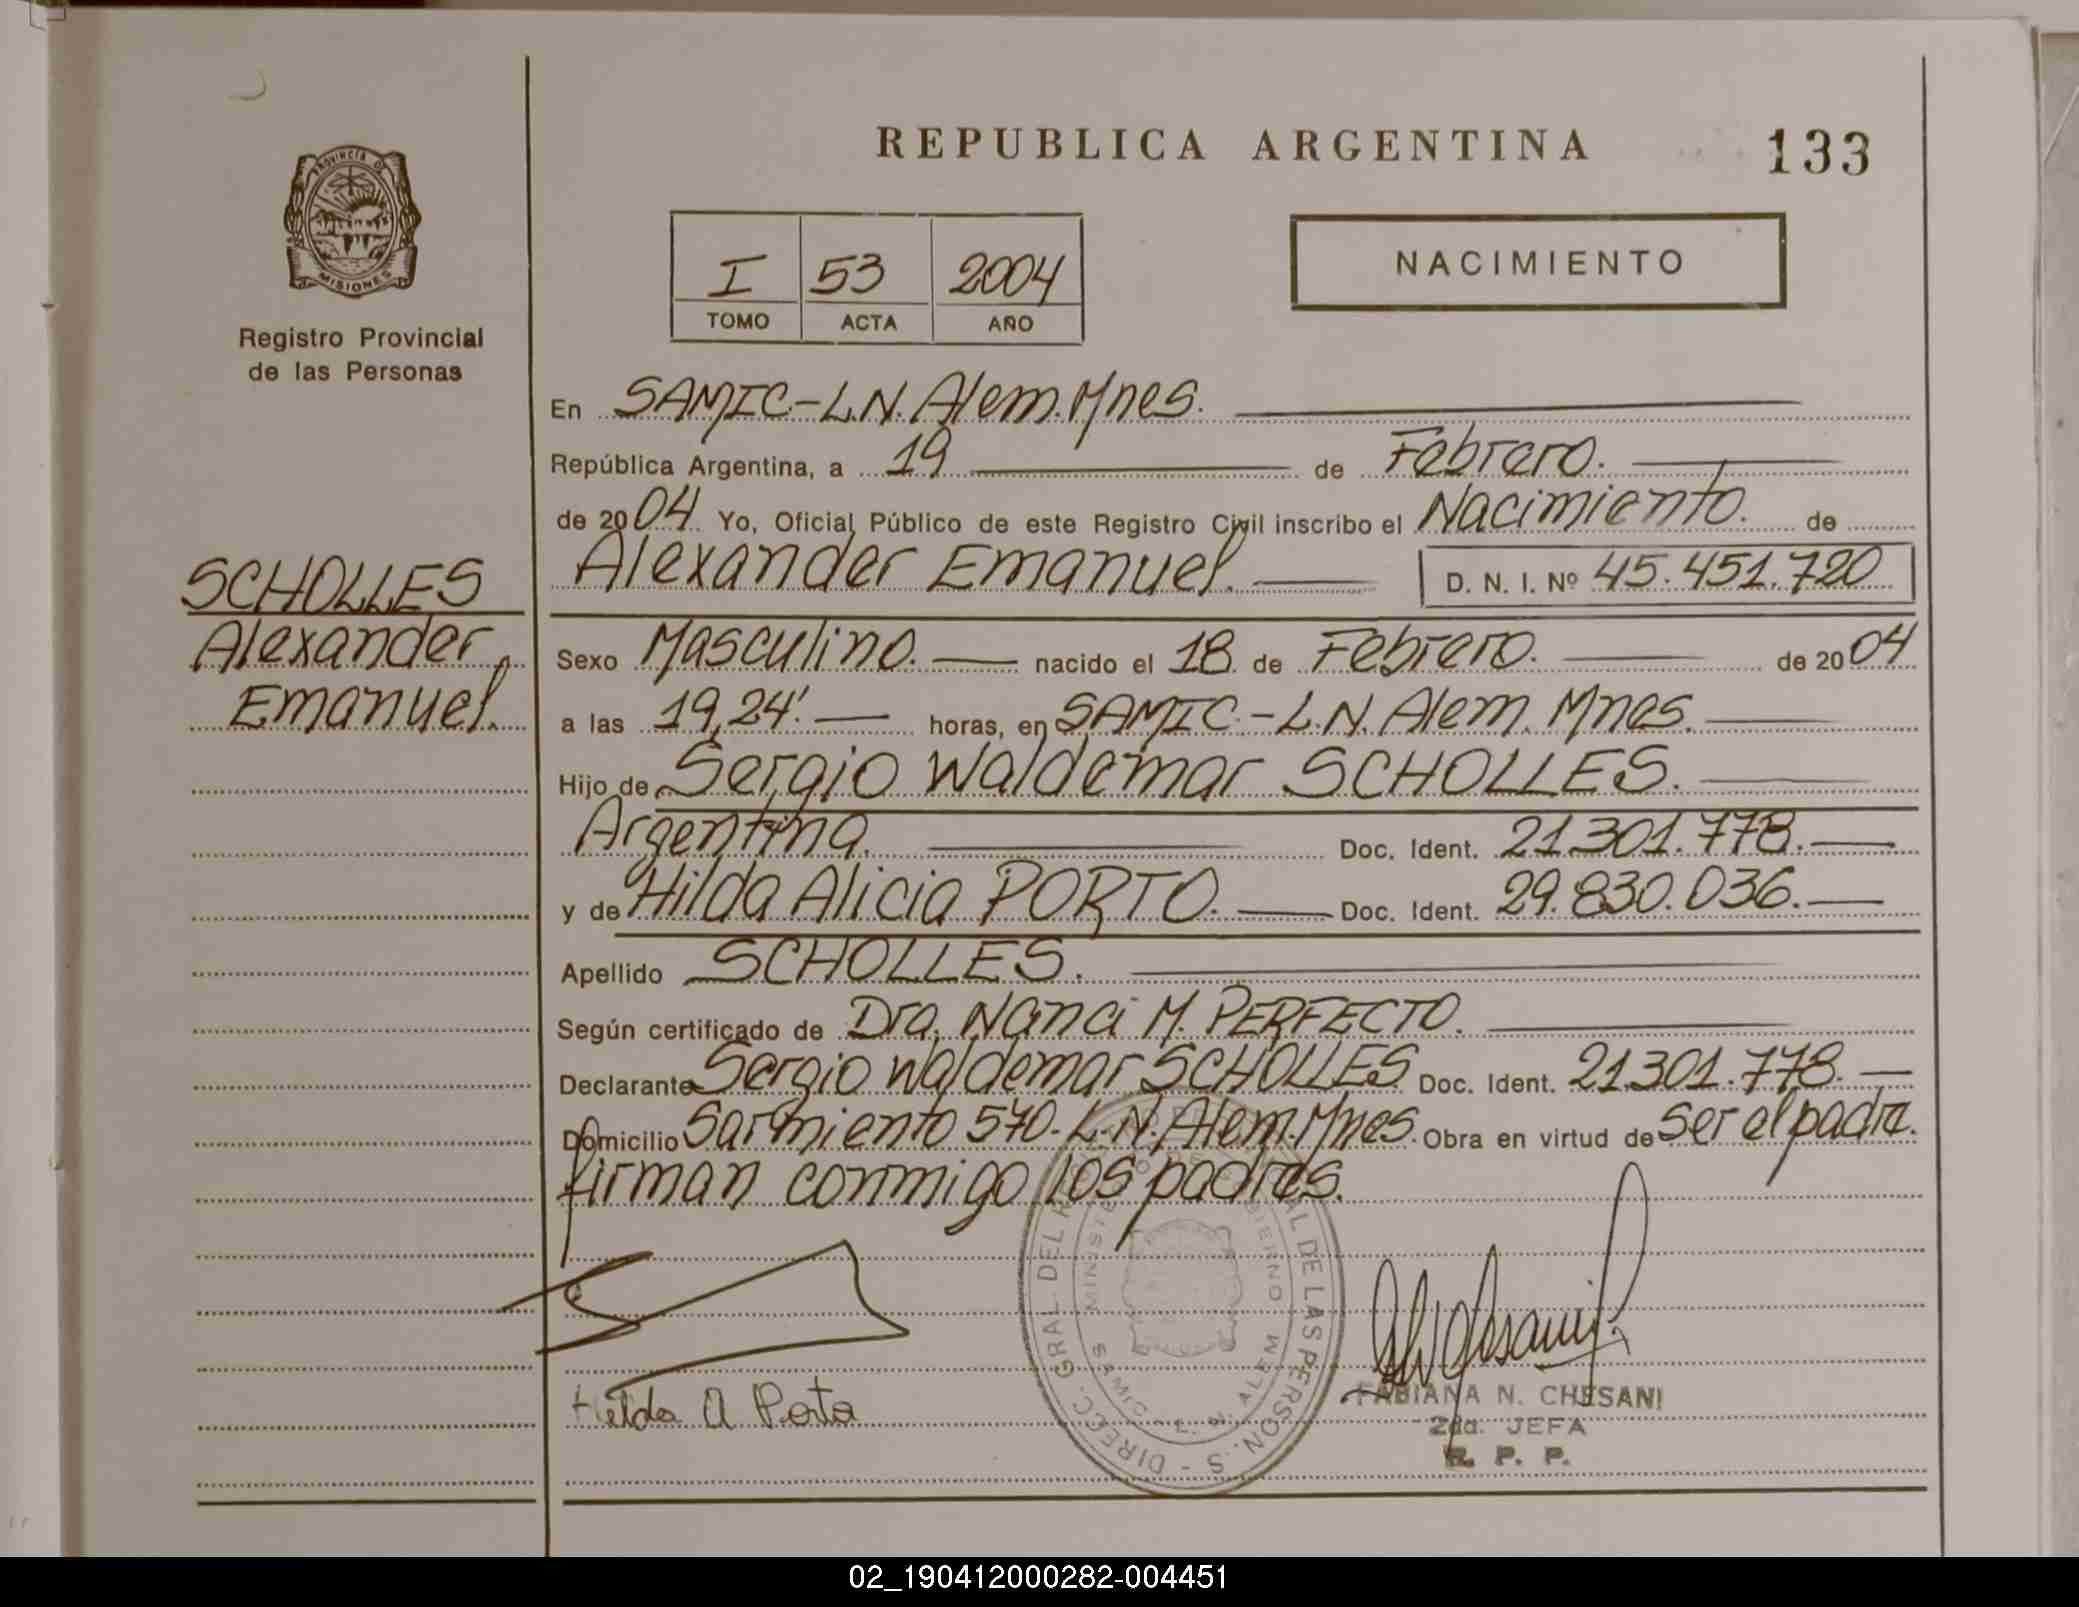 REPUBLICA ARGENTINA
133
PROVINCIA DE
MISIONES
Registro Provincial
de las Personas
I 53 2004
TOMO ACTA AÑO
NACIMIENTO
En SAMIC-L.N. Alem. Mnes.
República Argentina, a 19 de Febrero.
de 2004 Yo, Oficial Público de este Registro Civil inscribo el Nacimiento. de
Alexander Emanuel. D. N. I. Nº 45.451.720
SCHOLLES
Alexander
Emanuel.
Sexo Masculino. nacido el 18 de Febrero. de 2004
a las 19,24'. horas, en SAMIC.-L.N. Alem. Mnes.
Hijo de Sergio Waldemar SCHOLLES.
Argentina. Doc. Ident. 21.301.778.
y de Hilda Alicia PORTO. Doc. Ident. 29.830.036.
Apellido SCHOLLES.
Según certificado de Dra. Nanci M. PERFECTO.
Declarante Sergio Waldemar SCHOLLES Doc. Ident. 21.301.778.
Domicilio Sarmiento 570.-L.N. Alem. Mnes. Obra en virtud de ser el padre.
firman conmigo los padres.
Hilda A Porto
SAMIC - L. N. ALEM
FABIANA N. CHESANI
2da. JEFA
R. P. P.
02_190412000282-004451